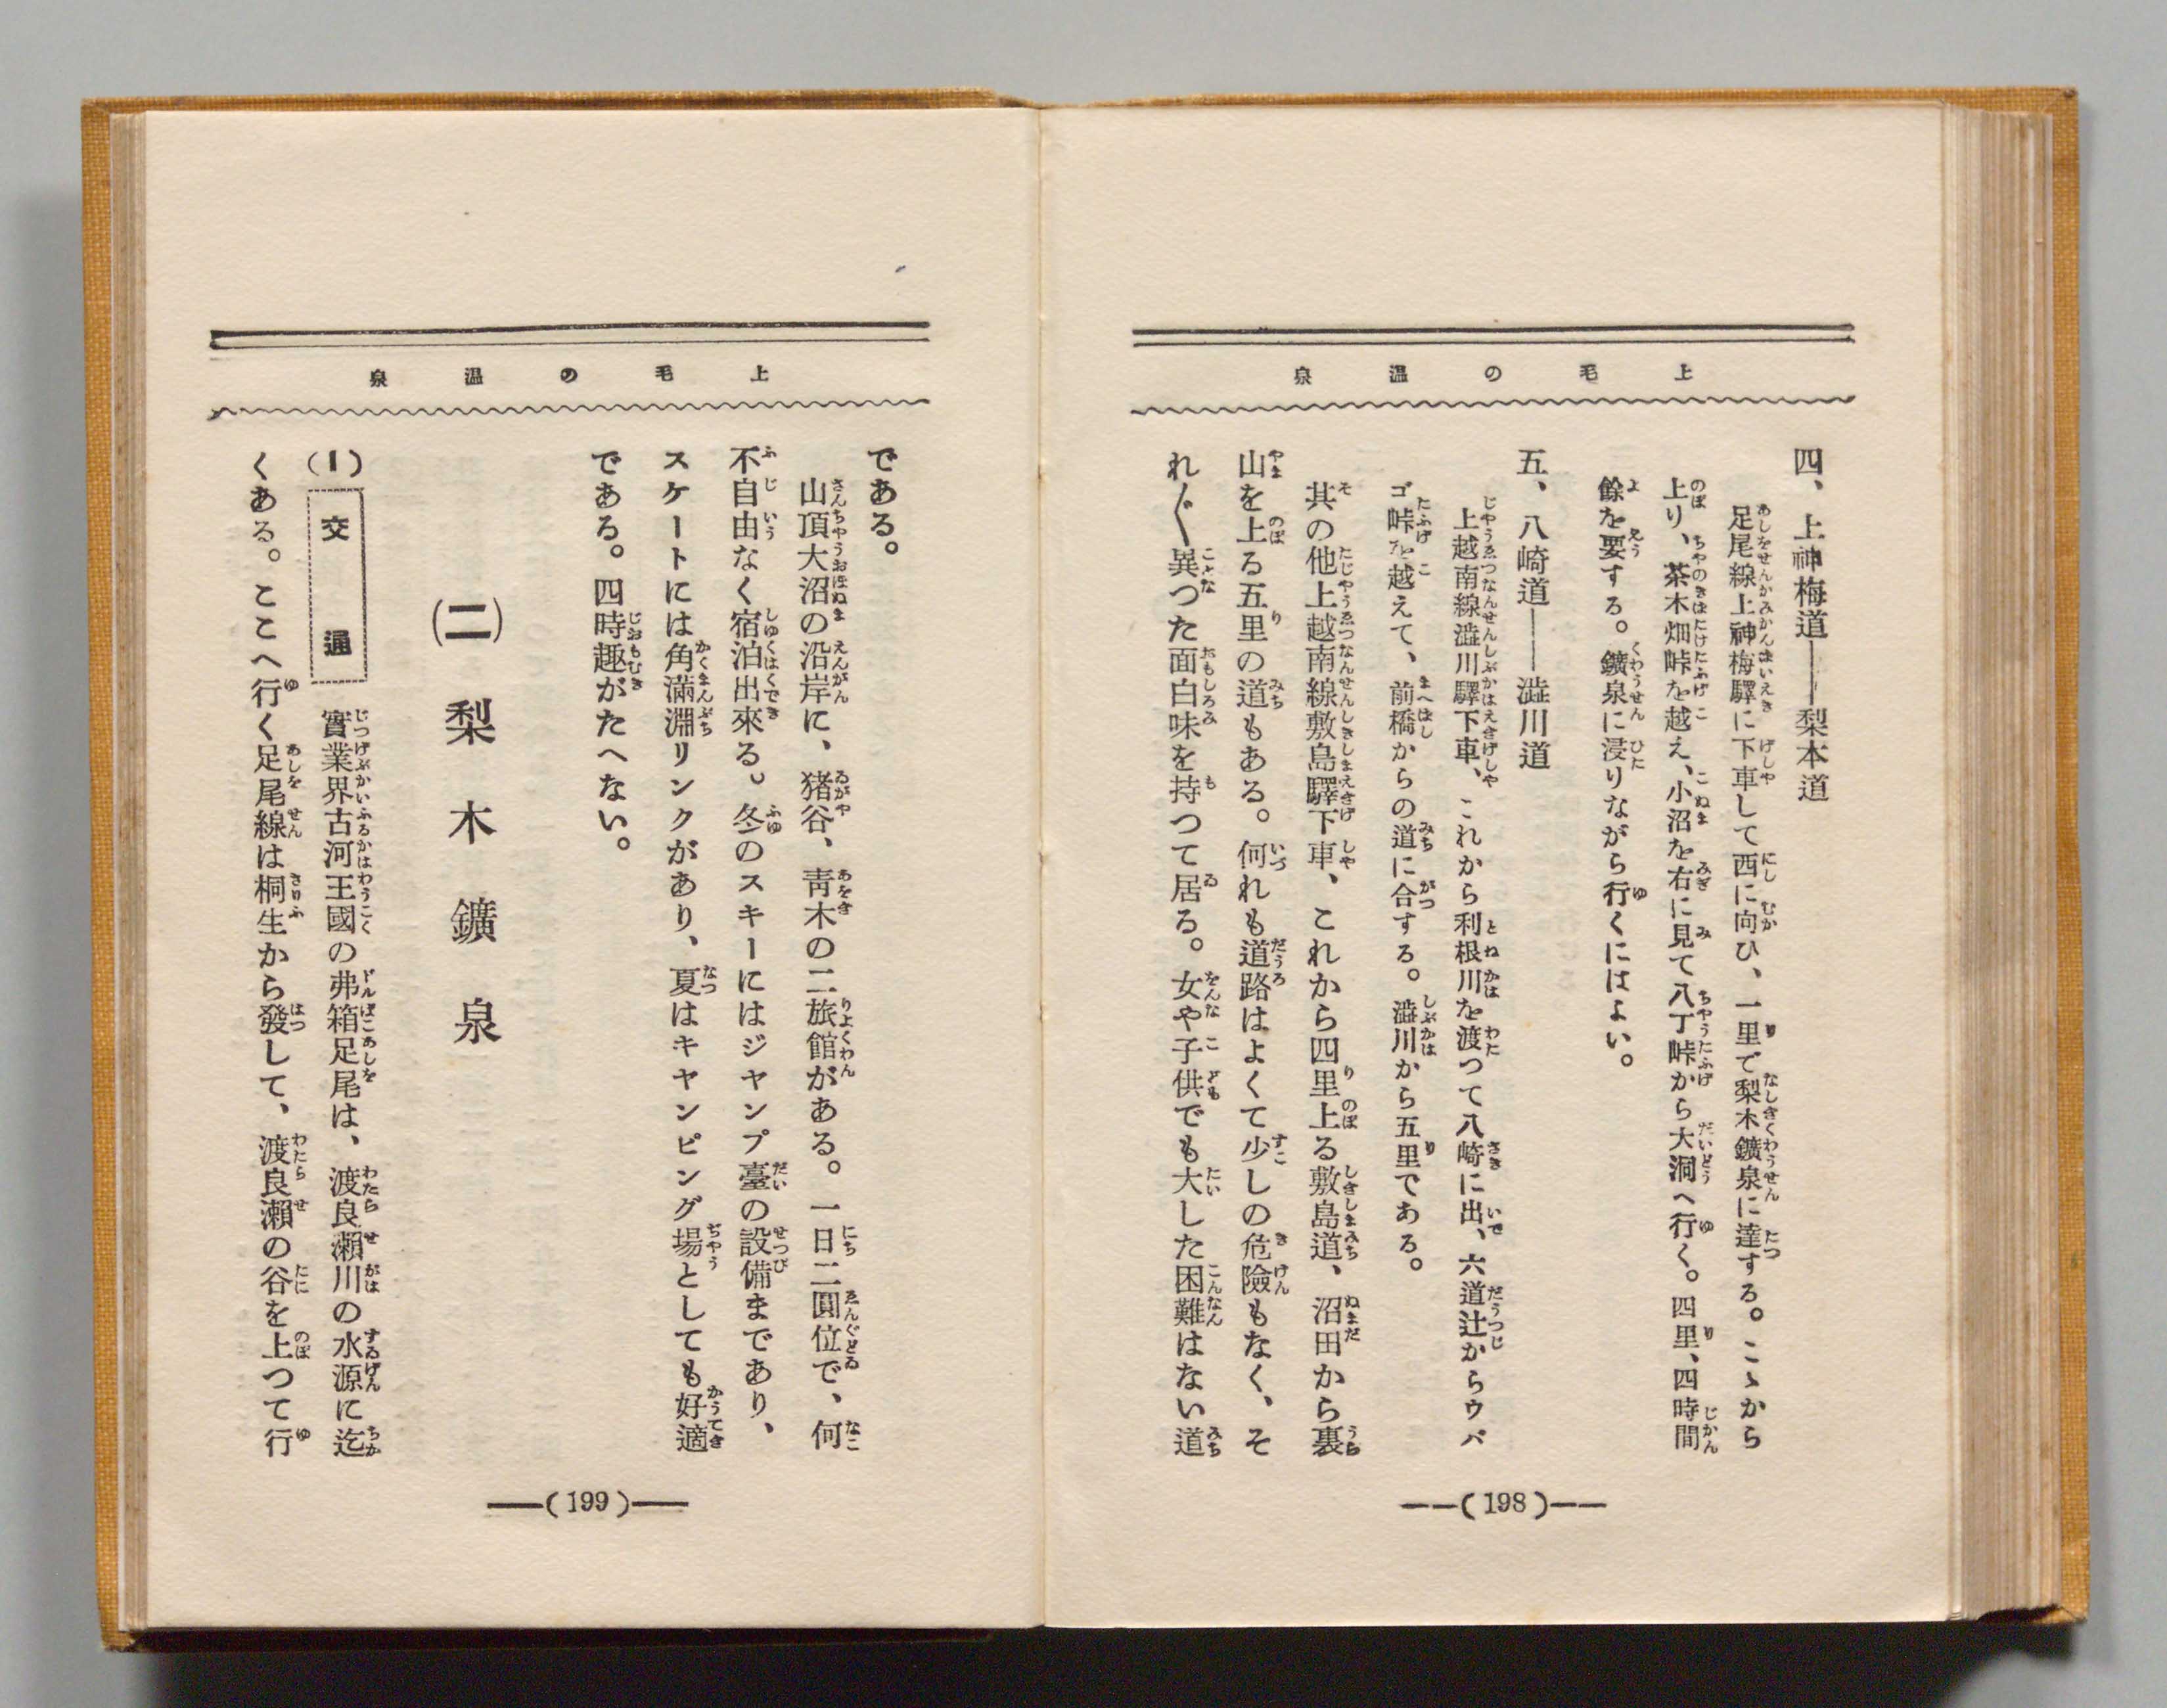 上毛の温泉
四、上神梅道――梨本道
足尾線上神梅驛に下車して西に向ひ、一里で梨木鑛泉に達する。こゝから
上り、茶木畑峠を越え、小沼を右に見て八丁峠から大洞へ行く。四里、四時間
餘を要する。鑛泉に浸りながら行くにはよい。
五、八崎道――澁川道
上越南線澁川驛下車、これから利根川を渡つて八崎に出、六道辻からウバ
ゴ峠を越えて、前橋からの道に合する。澁川から五里である。
其の他上越南線敷島驛下車、これから四里上る敷島道、沼田から裏
山を上る五里の道もある。何れも道路はよくて少しの危險もなく、そ
れ〴〵異つた面白味を持つて居る。女や子供でも大した困難はない道
――(198)――
上毛の温泉
である。
山頂大沼の沿岸に、猪谷、靑木の二旅館がある。一日二圓位で、何
不自由なく宿泊出來る。冬のスキーにはジヤンプ臺の設備まであり、
スケートには角滿淵リンクがあり、夏はキヤンピング場としても好適
である。四時趣がたへない。
(二)梨木鑛泉
(1)交通 實業界古河王國の弗箱足尾は、渡良瀨川の水源に迄
くある。ここへ行く足尾線は桐生から發して、渡良瀨の谷を上つて行
――(199)――